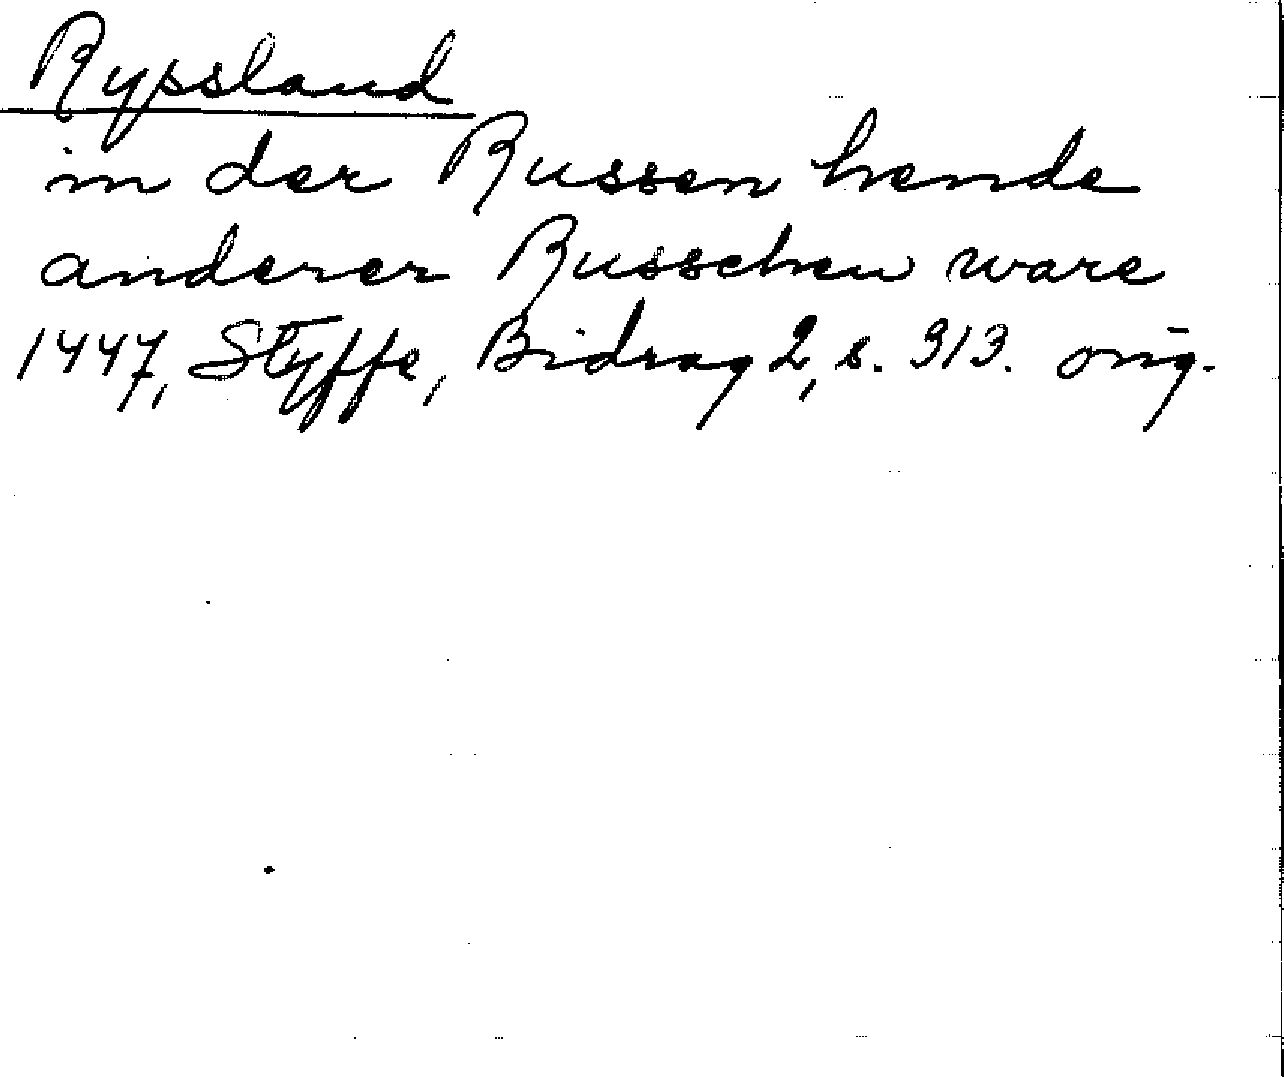 Rypsland
in der Russen hende
anderer Russcheu ware
1447, Styffe, Bidrag 2, s. 313. orig.